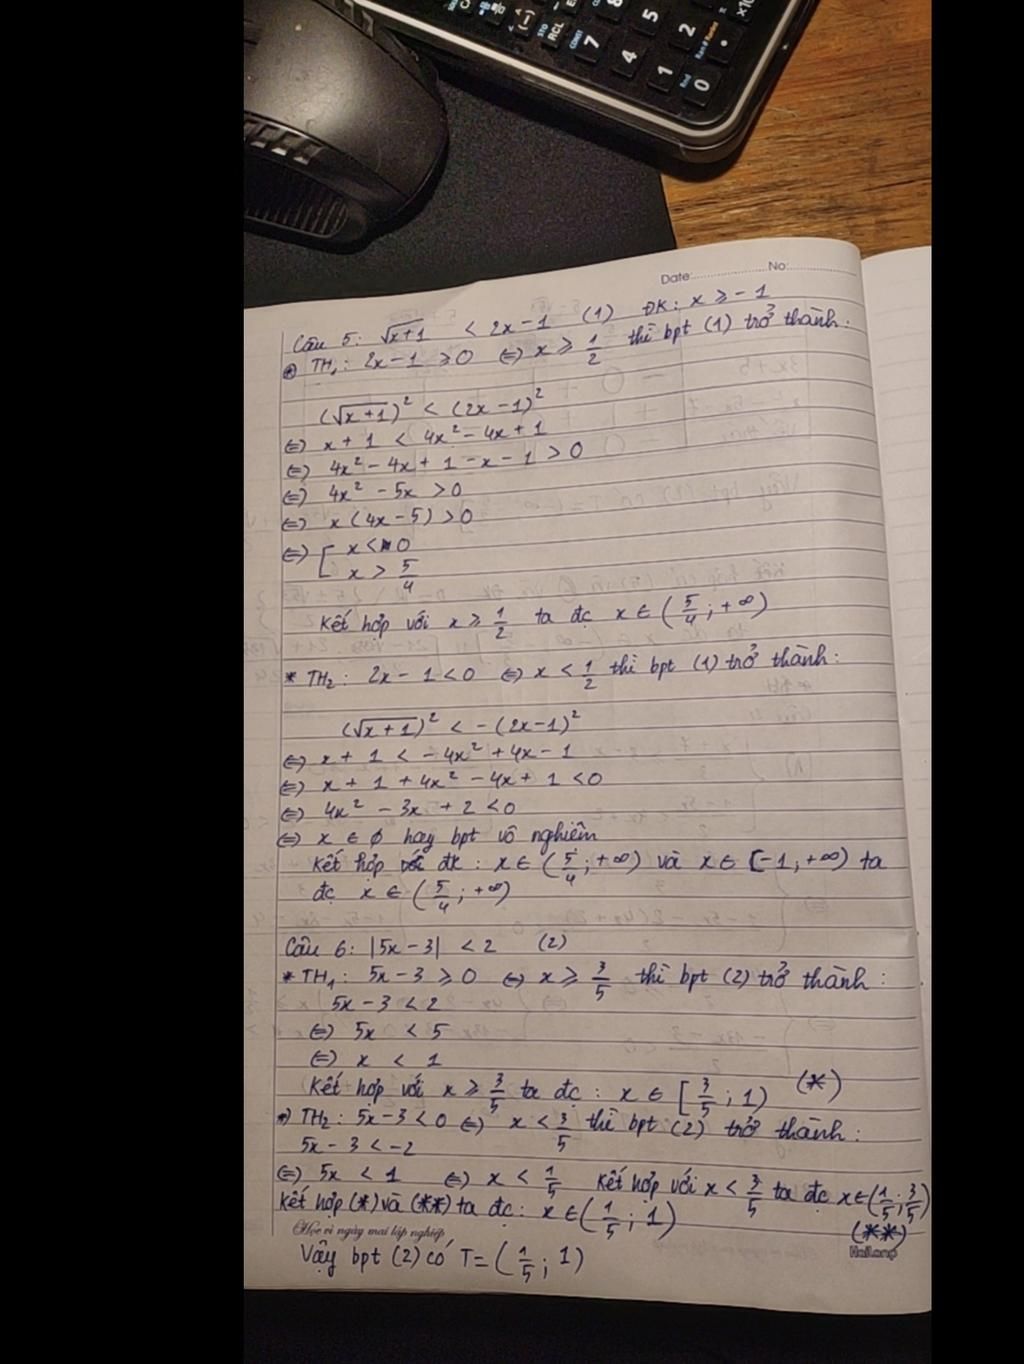 7
4
1
0
5
2
RCL
STO
(−)
Date: No:
Câu 5: √x+1 < 2x-1 (1) ĐK: x ≥ -1
* TH₁: 2x-1 ≥ 0 ⇔ x ≥ 1/2 thì bpt (1) trở thành:
(√x+1)² < (2x-1)²
⇔ x + 1 < 4x² - 4x + 1
⇔ 4x² - 4x + 1 - x - 1 > 0
⇔ 4x² - 5x > 0
⇔ x(4x-5) > 0
⇔ [ x < 0
x > 5/4
Kết hợp với x ≥ 1/2 ta đc x ∈ (5/4; +∞)
* TH₂: 2x - 1 < 0 ⇔ x < 1/2 thì bpt (1) trở thành:
(√x+1)² < -(2x-1)²
⇔ x + 1 < -4x² + 4x - 1
⇔ x + 1 + 4x² - 4x + 1 < 0
⇔ 4x² - 3x + 2 < 0
⇔ x ∈ ∅ hay bpt vô nghiệm
Kết hợp với đk: x ∈ (5/4; +∞) và x ∈ [-1; +∞) ta
đc x ∈ (5/4; +∞)
Câu 6: |5x-3| < 2 (2)
* TH₁: 5x-3 ≥ 0 ⇔ x ≥ 3/5 thì bpt (2) trở thành:
5x-3 < 2
⇔ 5x < 5
⇔ x < 1
Kết hợp với x ≥ 3/5 ta đc: x ∈ [3/5; 1) (*)
*) TH₂: 5x-3 < 0 ⇔ x < 3/5 thì bpt (2) trở thành:
5x - 3 < -2
⇔ 5x < 1 ⇔ x < 1/5 Kết hợp với x < 3/5 ta đc x ∈ (1/5; 3/5)
Kết hợp (*) và (**) ta đc: x ∈ (1/5; 1) (**)
Học vì ngày mai lập nghiệp
Vậy bpt (2) có T = (1/5; 1)